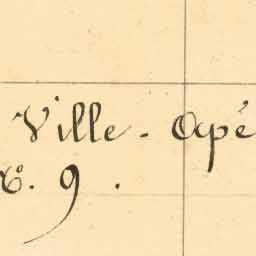 Ville - Opé
№. 9.